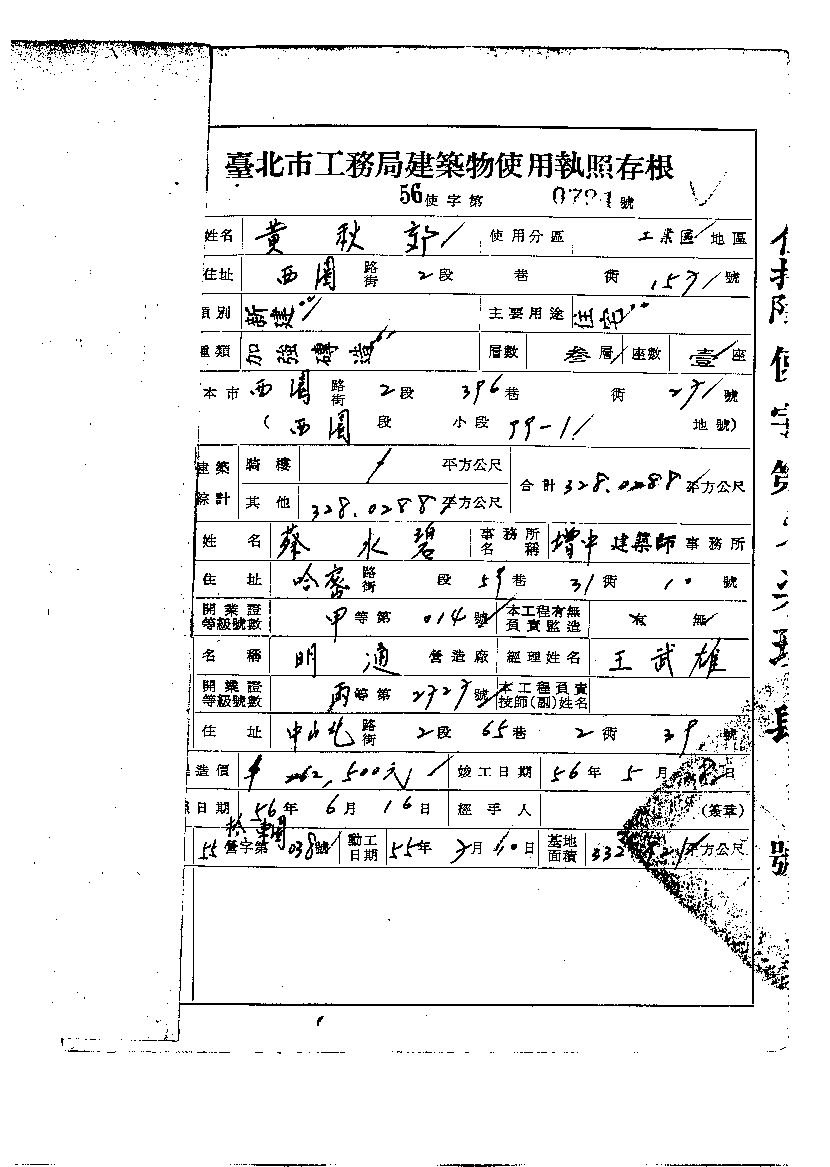 臺北市工務局建築物使用執照存根
56使字第 號
姓名 黃秋 使用分區 工業區 地區
住址 西園 路街 2段 巷 衖 號
類別 新建 主要用途 住宅
種類 加強磚造 層數 叁層 座數 壹座
本市 西園 路街 2段 396巷 衖 號
( 西園 段 小段 99-1 地號)
建築 騎樓 平方公尺 合計 328.0288 平方公尺
綜計 其他 328.0288 平方公尺
姓名 蔡水碧 事務所名稱 增中建築師事務所
住址 哈密 路街 段 59巷 31衖 10號
開業證等級號數 甲等第 014號 本工程有無負責監造 有 無
名稱 明通 營造廠 經理姓名 王武雄
開業證等級號數 丙等第 號 本工程負責技師(副)姓名
住址 中山北 路街 2段 65巷 2衖 39號
造價 262,500元 竣工日期 56年5月 日
日期 56年6月16日 經手人 (簽章)
55營字第038號 動工日期 55年 月10日 基地面積 平方公尺